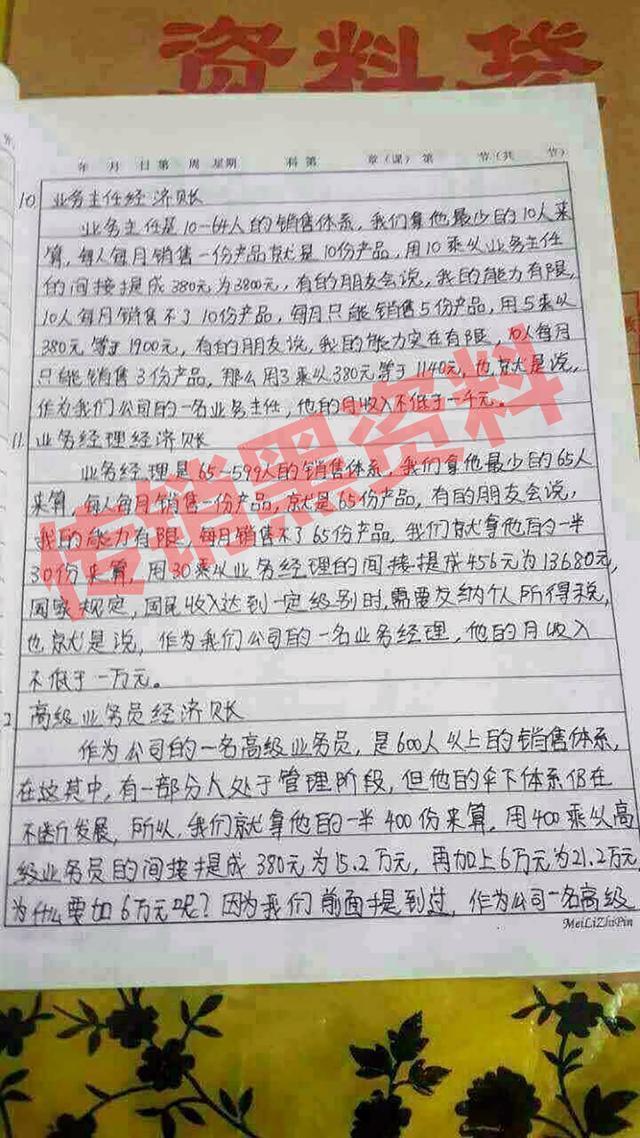 资料袋
年 月 日 第 周 星期 科 第 章(课) 第 节(共 节)
10 业务主任经济账
业务主任是10-64人的销售体系，我们拿他最少的10人来
算，每人每月销售一份产品就是10份产品，用10乘以业务主任
的间接提成380元为3800元，有的朋友会说，我的能力有限，
10人每月销售不了10份产品，每月只能销售5份产品，用5乘以
380元等于1900元，有的朋友说，我的能力实在有限，10人每月
只能销售3份产品，那么用3乘以380元等于1140元，也就是说，
作为我们公司的一名业务主任，他的月收入不低于一千元。
11. 业务经理经济账
业务经理是65-599人的销售体系，我们拿他最少的65人
来算，每人每月销售一份产品，就是65份产品，有的朋友会说，
我的能力有限，每月销售不了65份产品，我们就拿他的一半
30份来算，用30乘以业务经理的间接提成456元为13680元，
国家规定，国民收入达到一定级别时，需要交纳个人所得税，
也就是说，作为我们公司的一名业务经理，他的月收入
不低于一万元。
2 高级业务员经济账
作为公司的一名高级业务员，是600人以上的销售体系，
在这其中，有一部分人处于管理阶段，但他的伞下体系仍在
不断发展，所以，我们就拿他的一半400份来算，用400乘以高
级业务员的间接提成380元为15.2万元，再加上6万元为21.2万元，
为什么要加6万元呢？因为我们前面提到过，作为公司一名高级
MeiLiZhiPin
传销黑资料